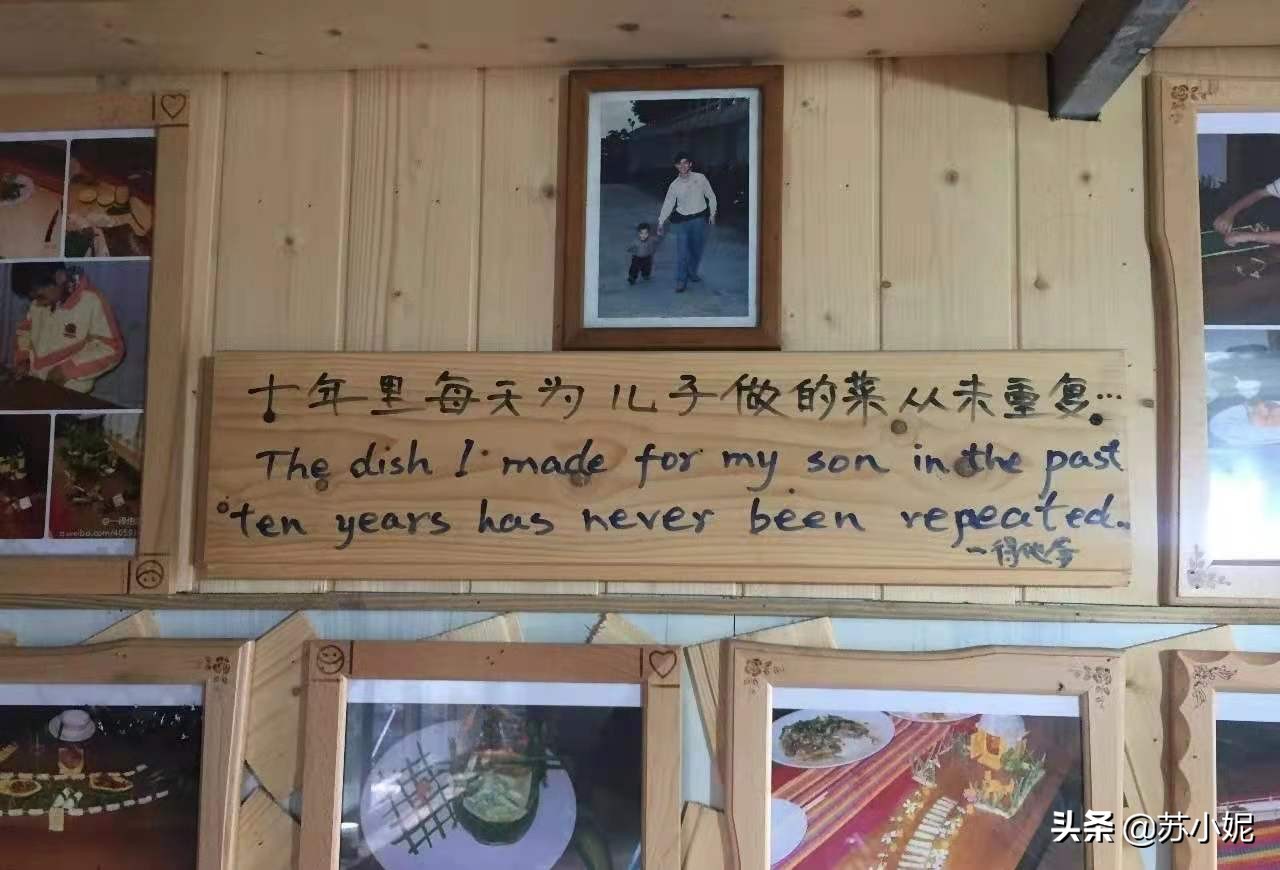 十年里每天为儿子做的菜从未重复…
The dish I made for my son in the past
ten years has never been repeated..
一得他爹
头条 @苏小妮